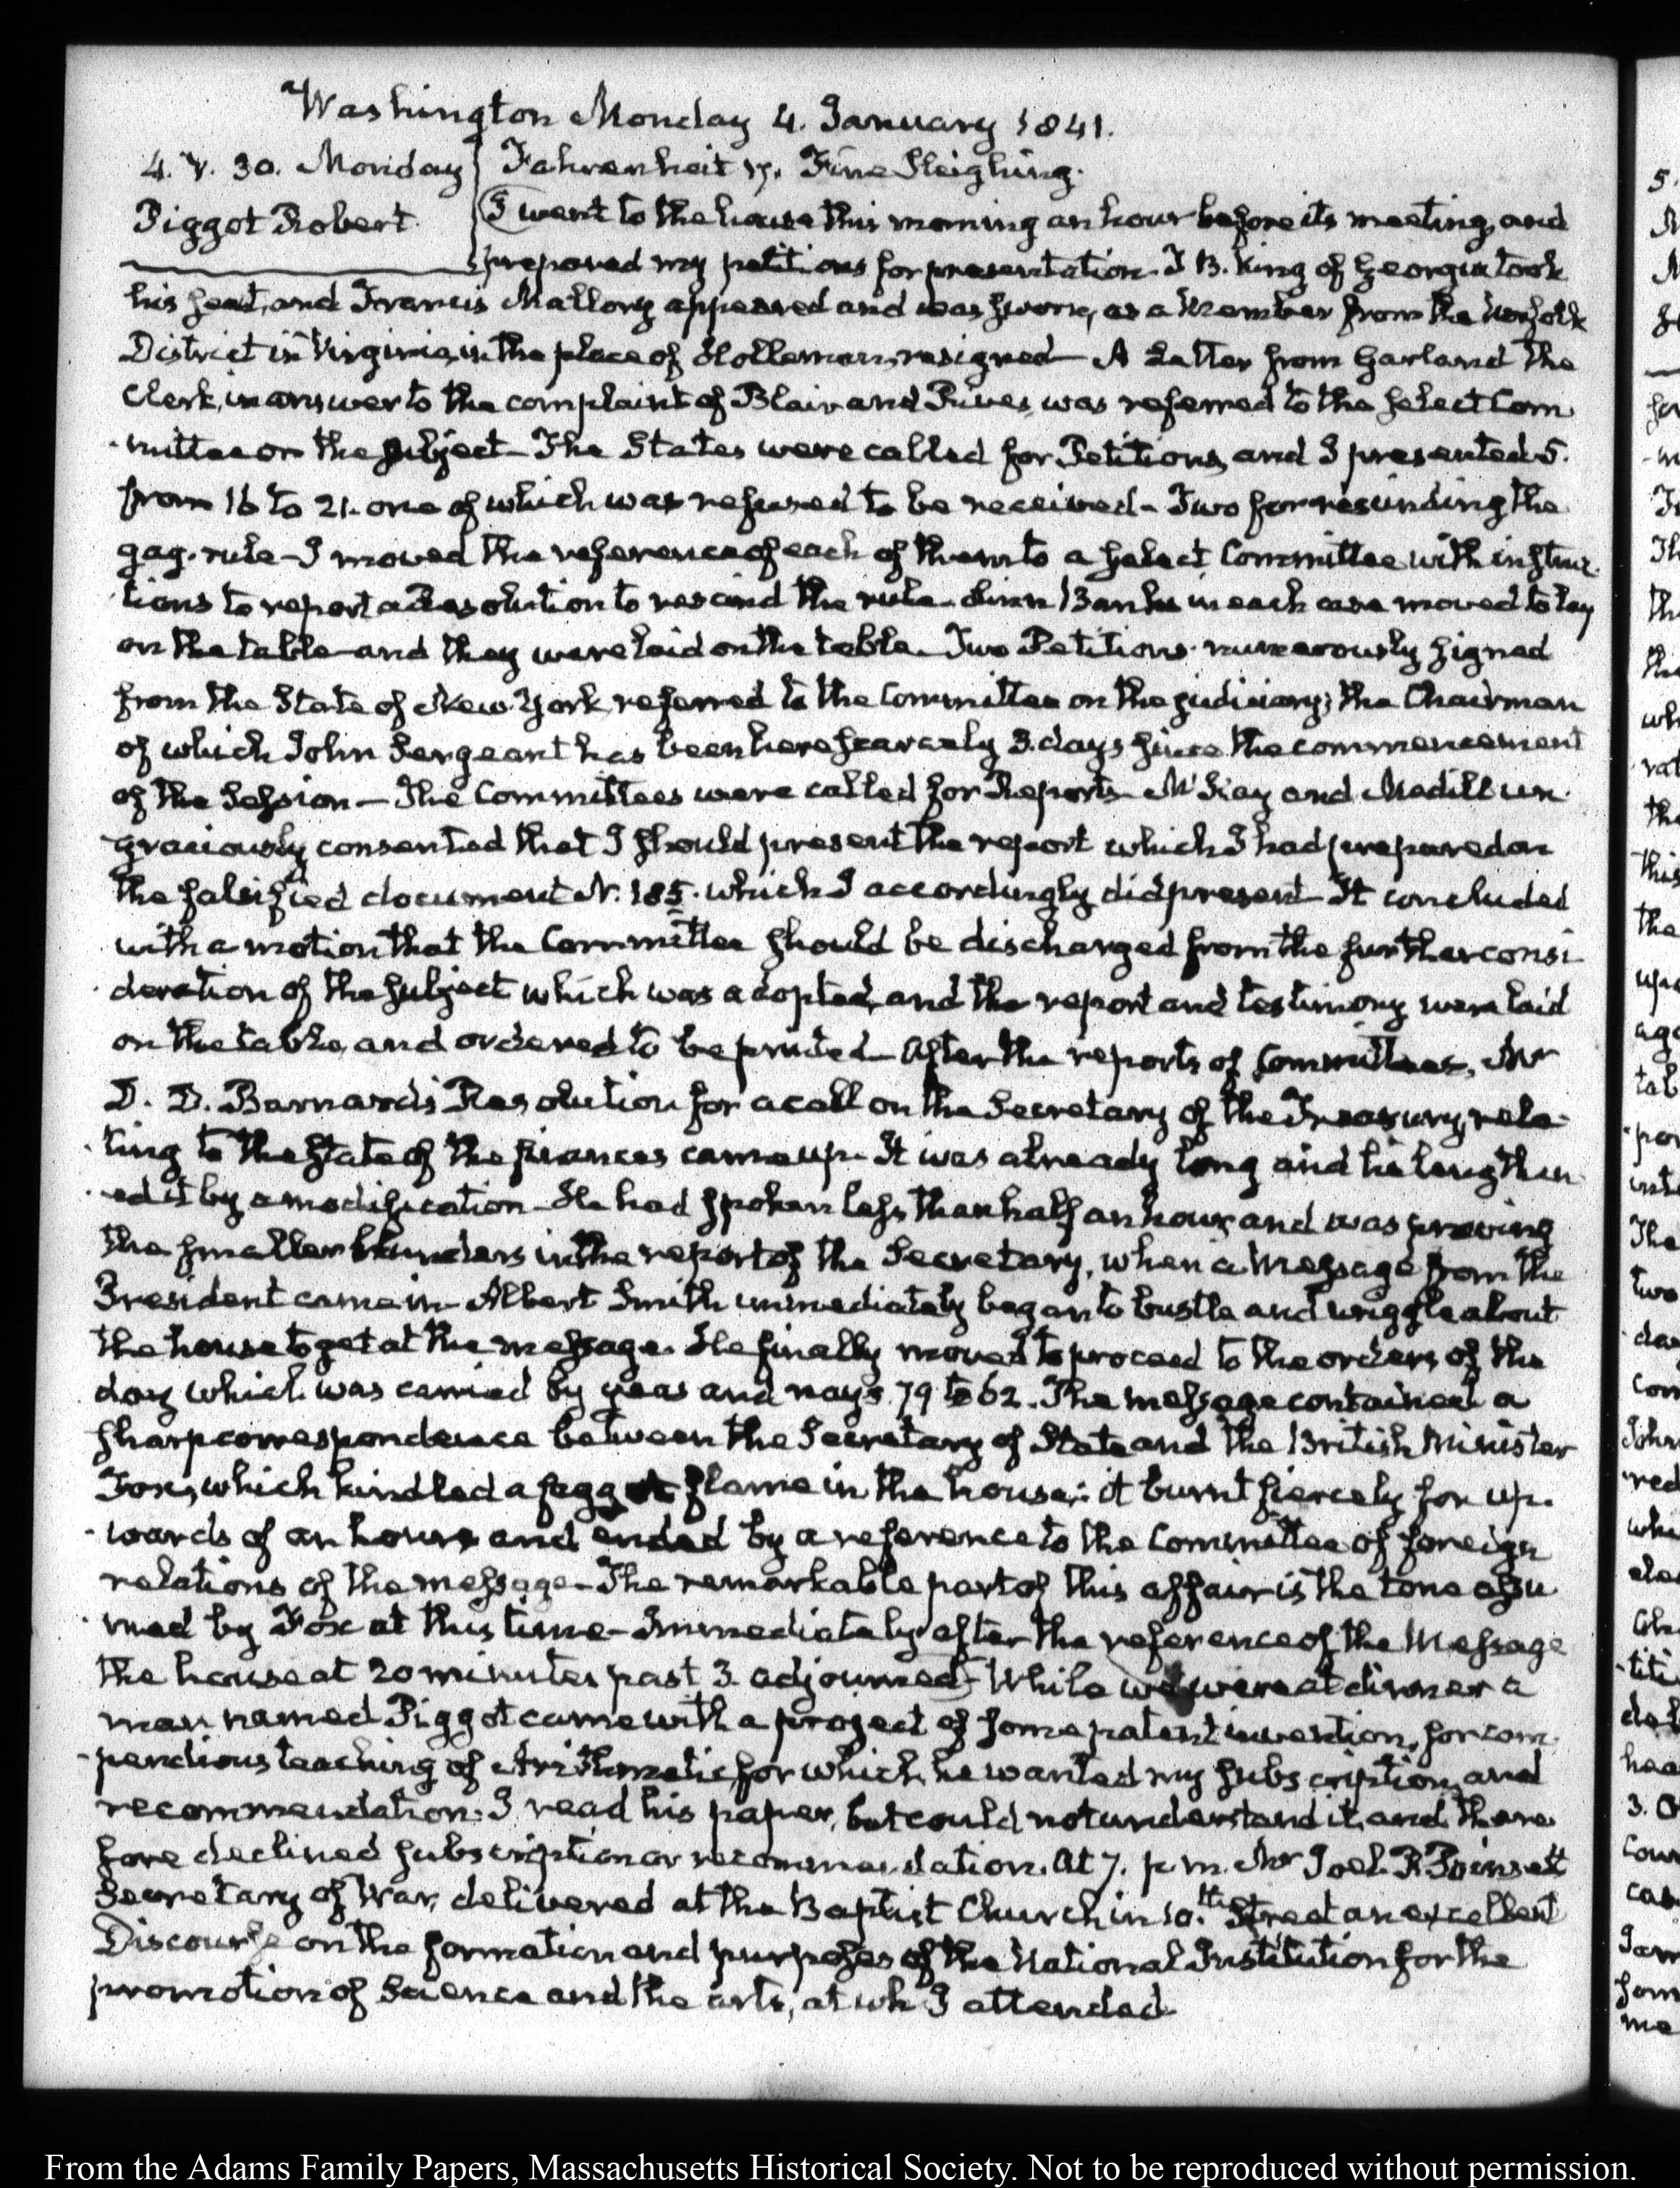 Washington Monday 4. January 1841.
4. V. 30. Monday
Piggot Robert.
Fahrenheit 17. Fine Sleighing.
I went to the house this morning an hour before its meeting, and
prepared my petitions for presentation. T B. King of Georgia took
his seat, and Francis Mallory appeared and was sworn, as a Member from the Norfolk
District in Virginia, in the place of Holleman, resigned — A Letter from Garland the
Clerk, in answer to the complaint of Blair and Rives, was referred to the select Com
-mittee on the subject — The States were called for Petitions, and I presented 5.
from 16 to 21. one of which was refused to be received — Two for rescinding the
gag-rule — I moved the reference of each of them to a select Committee with instruc-
tions to report a Resolution to rescind the rule — Linn Banks in each case moved to lay
on the table and they were laid on the table. Two Petitions numerously signed
from the State of New-York, referred to the Committee on the judiciary; the Chairman
of which John Sergeant has been here scarcely 3. days since the commencement
of the Session — The Committees were called for Reports — McKay and Medill un-
-graciously consented that I should present the report which I had prepared on
the falsified document N. 185. which I accordingly did present — It concluded
with a motion that the Committee should be discharged from the further consi-
-deration of the subject which was adopted, and the report and testimony were laid
on the table, and ordered to be printed — After the reports of Committees, Mr
D. D. Barnard's Resolution for a call on the Secretary of the Treasury, rela-
-ting to the state of the finances came up. It was already long and he lengthen
-ed it by a modification — He had spoken less than half an hour, and was proving
the smaller blunders in the report of the Secretary, when a Message from the
President came in — Albert Smith immediately began to bustle and wriggle about
the house to get at the message. He finally moved to proceed to the orders of the
day which was carried by yeas and nays 79 to 62. The message contained a
sharp correspondence between the Secretary of State and the British Minister
Fox, which kindled a faggot flame in the house; it burnt fiercely for up-
-wards of an hour and ended by a reference to the Committee of foreign
relations of the message — The remarkable part of this affair is the tone assu
-med by Fox at this time — Immediately after the reference of the Message
the house at 20 minutes past 3. adjourned — While we were at dinner a
man named Piggot came with a project of some patent invention, for com-
-pendious teaching of Arithmetic, for which he wanted my subscription, and
recommendation. I read his paper, but could not understand it, and there
fore declined subscription or recommendation. At 7. p.m. Mr Joel R. Poinsett
Secretary of War, delivered at the Baptist Church in 10.th Street an excellent
Discourse on the formation and purposes of the National Institution for the
promotion of Science and the arts, at wh. I attended
From the Adams Family Papers, Massachusetts Historical Society. Not to be reproduced without permission.